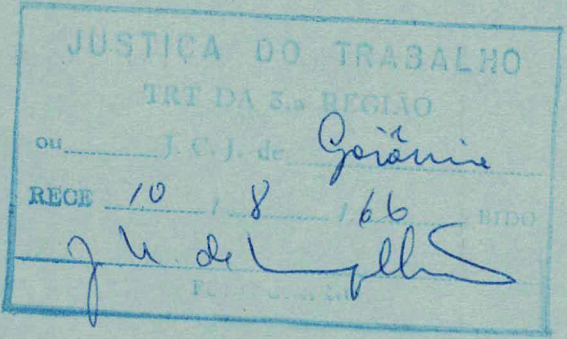 JUSTIÇA DO TRABALHO
TRT DA 3.a REGIÃO
ou J. C. J. de Goiânia
RECE 10 / 8 / 66 BIDO